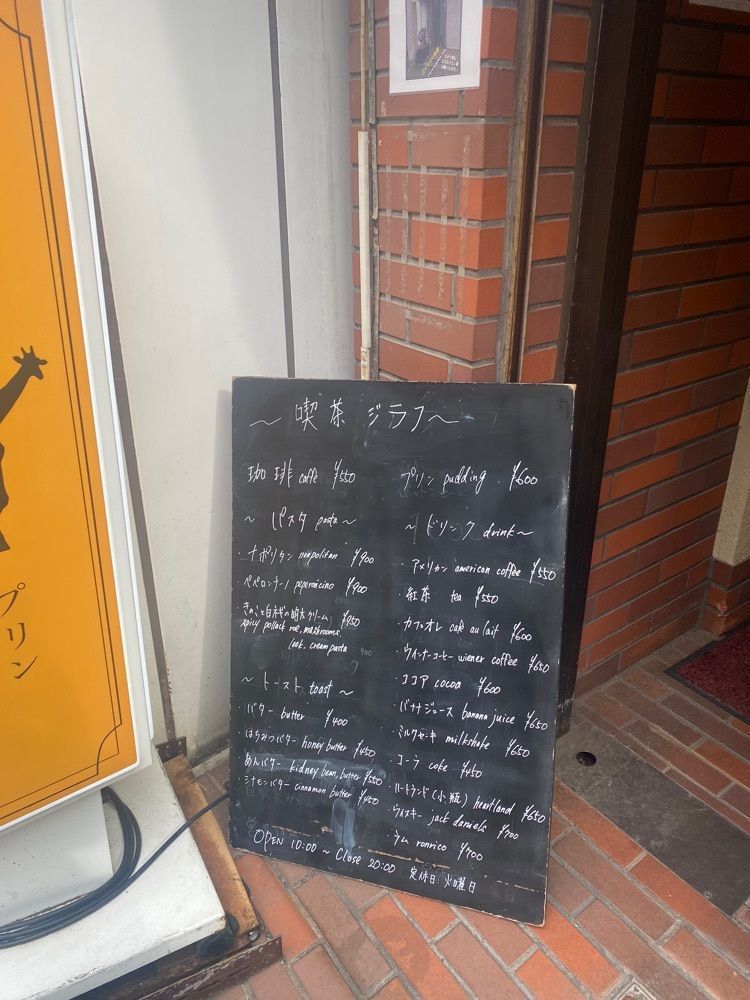 プリン
〜 喫茶 ジラフ 〜
珈琲 caffe ¥550
〜 パスタ pasta 〜
・ナポリタン neapolitan ¥900
・ペペロンチーノ peperoncino ¥900
・きのこと白ネギの明太クリーム ¥950
spicy pollack roe, mushrooms,
leek, cream pasta
〜 トースト toast 〜
・バター butter ¥400
・はちみつバター honey butter ¥450
・あんバター kidney bean, butter ¥550
・シナモンバター cinnamon butter ¥450
プリン pudding ¥600
〜 ドリンク drink 〜
・アメリカン american coffee ¥550
・紅茶 tea ¥550
・カフェオレ cafe au lait ¥600
・ウインナーコーヒー wiener coffee ¥650
・ココア cocoa ¥600
・バナナジュース banana juice ¥650
・ミルクセーキ milkshake ¥650
・コーラ coke ¥450
・ハートランド(小瓶) heartland ¥650
・ウイスキー jack daniels ¥700
・ラム ronrico ¥700
OPEN 10:00 〜 Close 20:00 定休日 火曜日